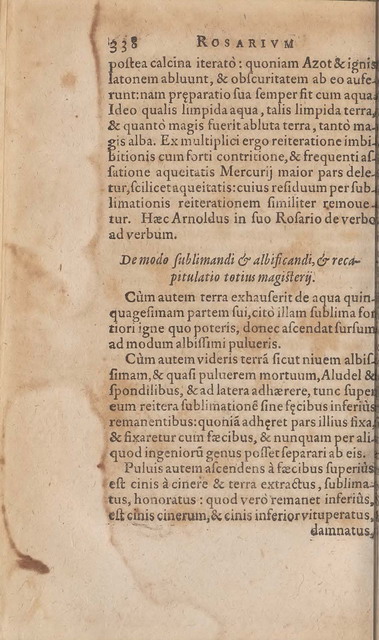 338 ROSARIVM
postea calcina iteratò: quoniam Azot & ignis
latonem abluunt, & obscuritatem ab eo aufe-
runt: nam pręparatio sua semper fit cum aqua.
Ideo qualis limpida aqua, talis limpida terra,
& quantò magis fuerit abluta terra, tantò ma-
gis alba. Ex multiplici ergo reiteratione imbi-
bitionis cum forti contritione, & frequenti as-
satione aqueitatis Mercurij maior pars dele-
tur, scilicet aqueitatis: cuius residuum per sub-
limationis reiterationem similiter remoue-
tur. Hæc Arnoldus in suo Rosario de verbo
ad verbum.
De modo sublimandi & albificandi, & reca-
pitulatio totius magisterij.
Cùm autem terra exhauserit de aqua quin-
quagesimam partem sui, citò illam sublima for
tiori igne quo poteris, donec ascendat sursum
ad modum albissimi pulueris.
Cùm autem videris terrã sicut niuem albis-
simam, & quasi puluerem mortuum, Aludel &
spondilibus, & ad latera adhærere, tunc super
eum reitera sublimationẽ sine fęcibus inferiùs
remanentibus: quoniã adhęret pars illius fixa,
& fixaretur cum fæcibus, & nunquam per ali-
quod ingeniorũ genus posset separari ab eis.
Puluis autem ascendens à fæcibus superiùs
est cinis à cinere & terra extractus, sublima-
tus, honoratus: quod verò remanet inferiùs,
est cinis cinerum, & cinis inferior vituperatus,
damnatus,